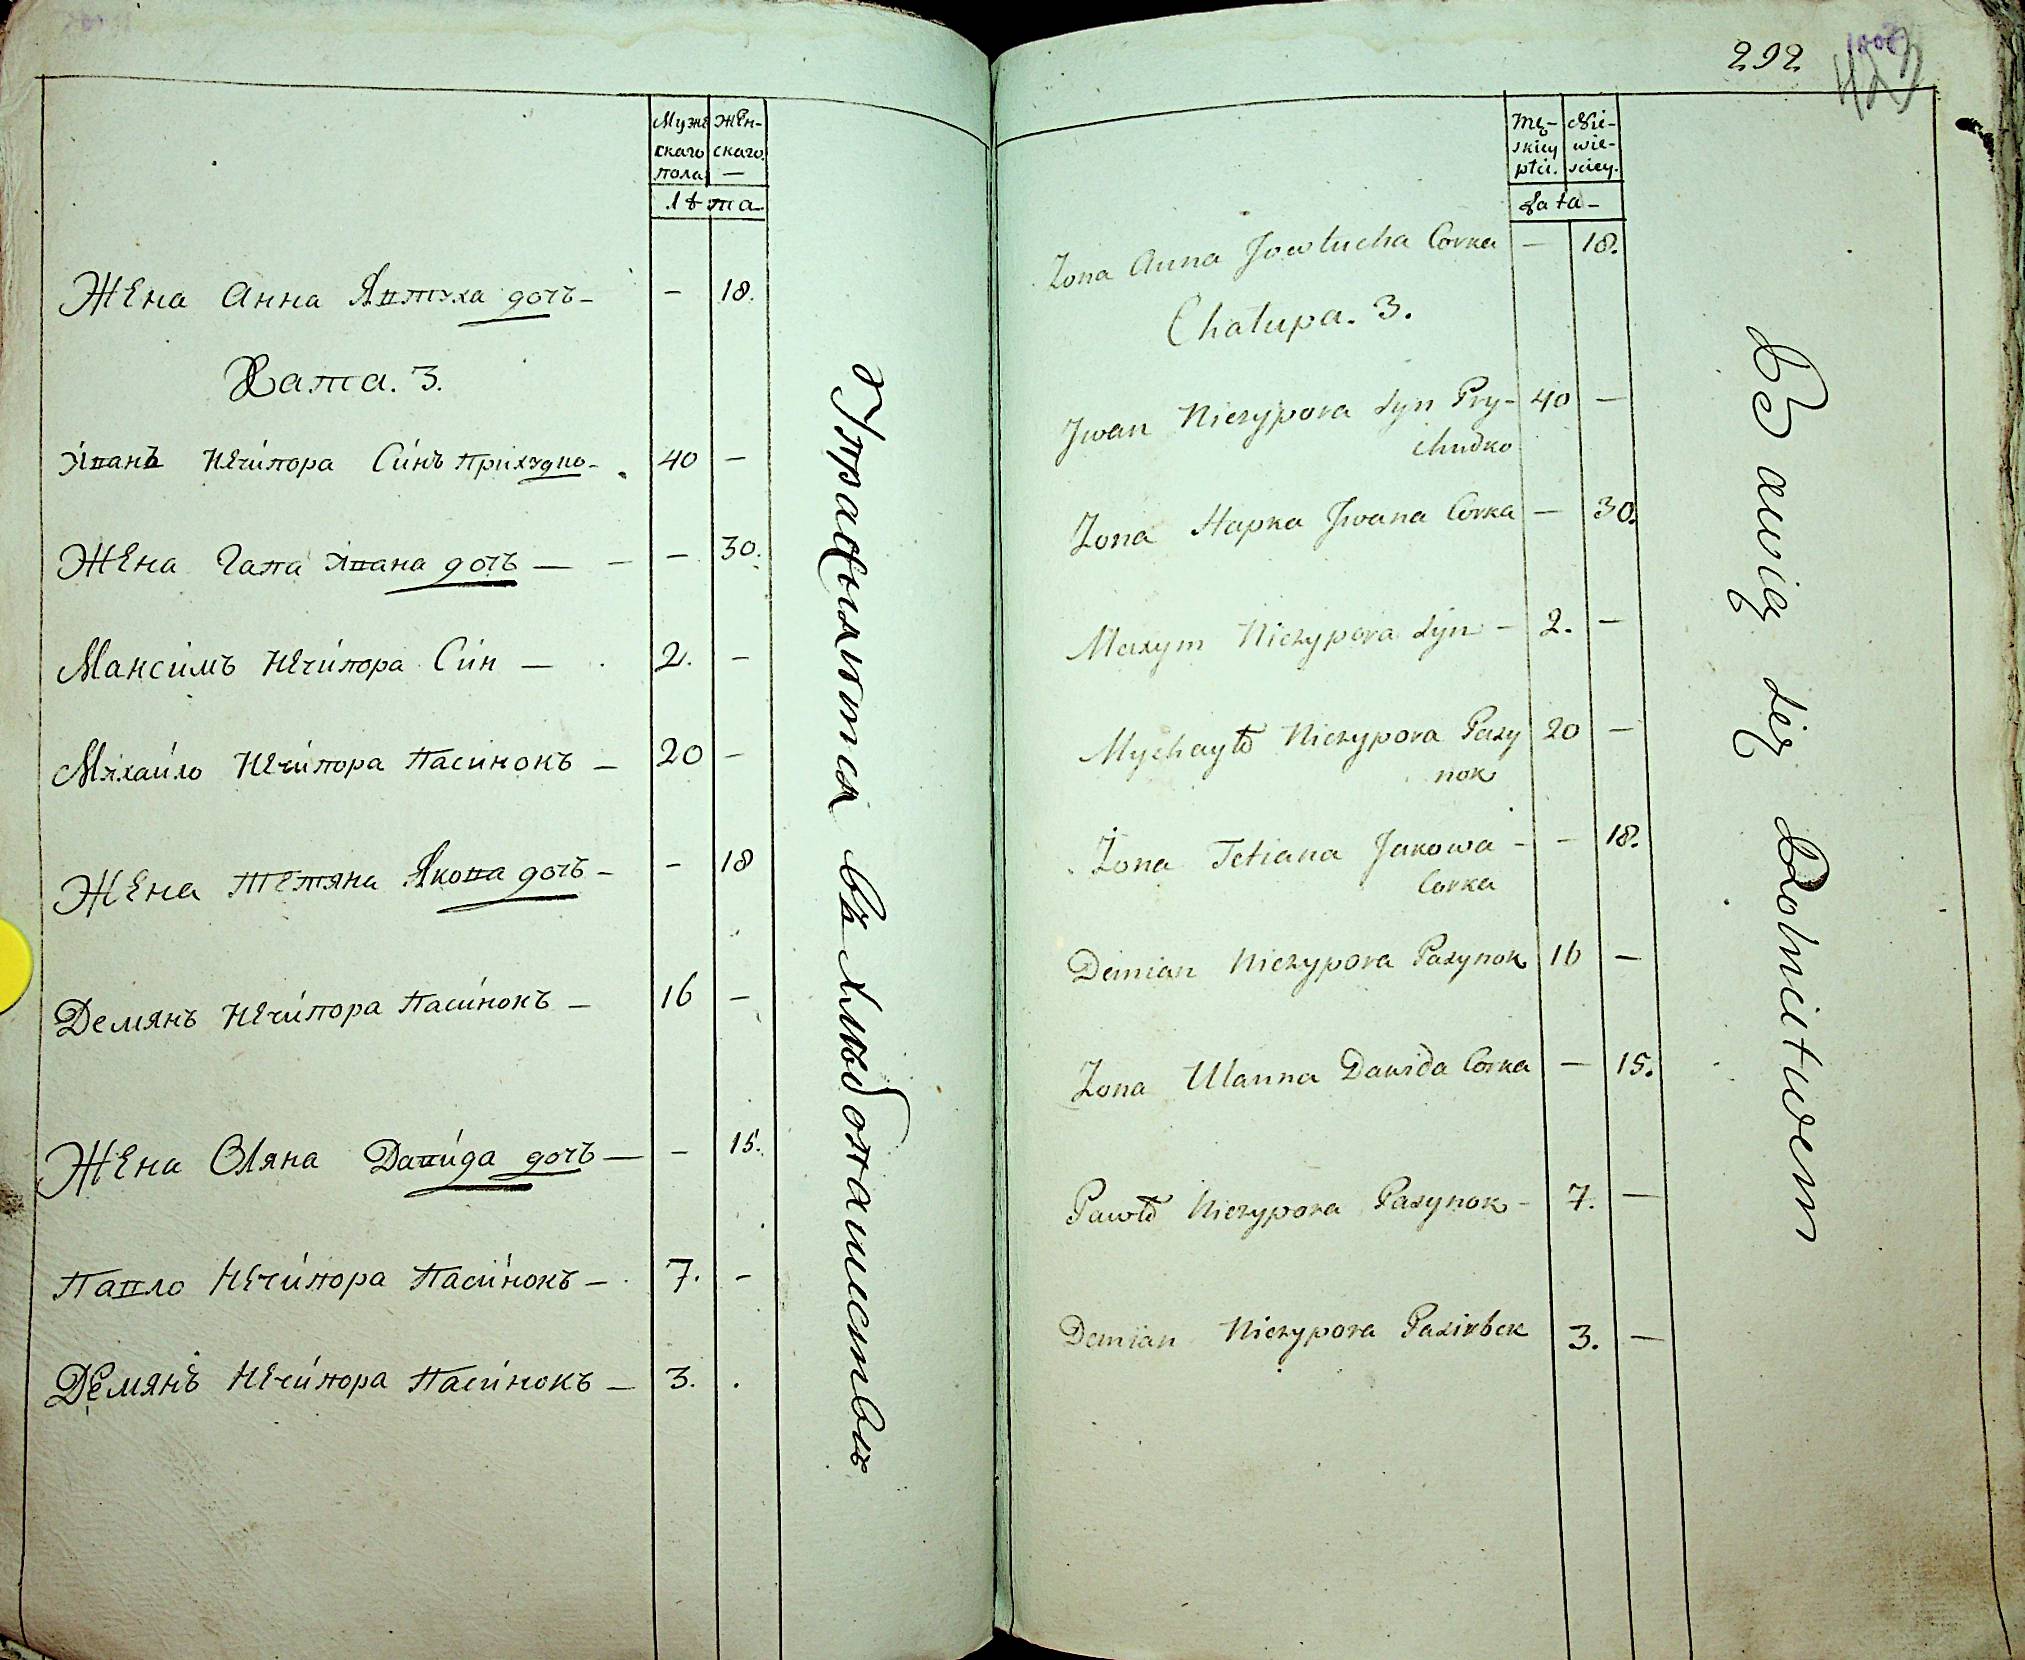 Мужескаго пола
Женскаго —
Лѣта
Жена Анна Явтуха дочь — — 18.
Хата. 3.
Іванъ Нечипора Синъ Приходко — 40 —
Жена Гапа Івана дочь — — — 30.
Максимъ Нечипора Син — 2. —
Михайло Нечипора Пасинокъ — 20 —
Жена Тетяна Якова дочь — — 18
Демянъ Нечипора Пасинокъ — 16 —
Жена Оляна Давида дочь — — 15.
Павло Нечипора Пасинокъ — 7. —
Демянъ Нечипора Пасинокъ — 3. .
Упражняются въ хлебопашествѣ
292
423
Męskiey płci.
Niewieściey.
Lata —
Zona Anna Jowtucha Corka — 18.
Chałupa. 3.
Jwan Niczypora Syn Pry- 40 —
chudko
Zona Hapka Jwana Corka — 30.
Maxym Niczypora Syn — 2. —
Mychayło Niczypora Pasy 20 —
nok
Żona Tetiana Jakowa — — 18.
Corka
Demian Niczypora Pasynok 16 —
Zona Ulanna Dawida Corka — 15.
Pawło Niczypora Pasynok — 7. —
Demian Niczypora Pasirbek 3. —
Bawią się Rolnictwem